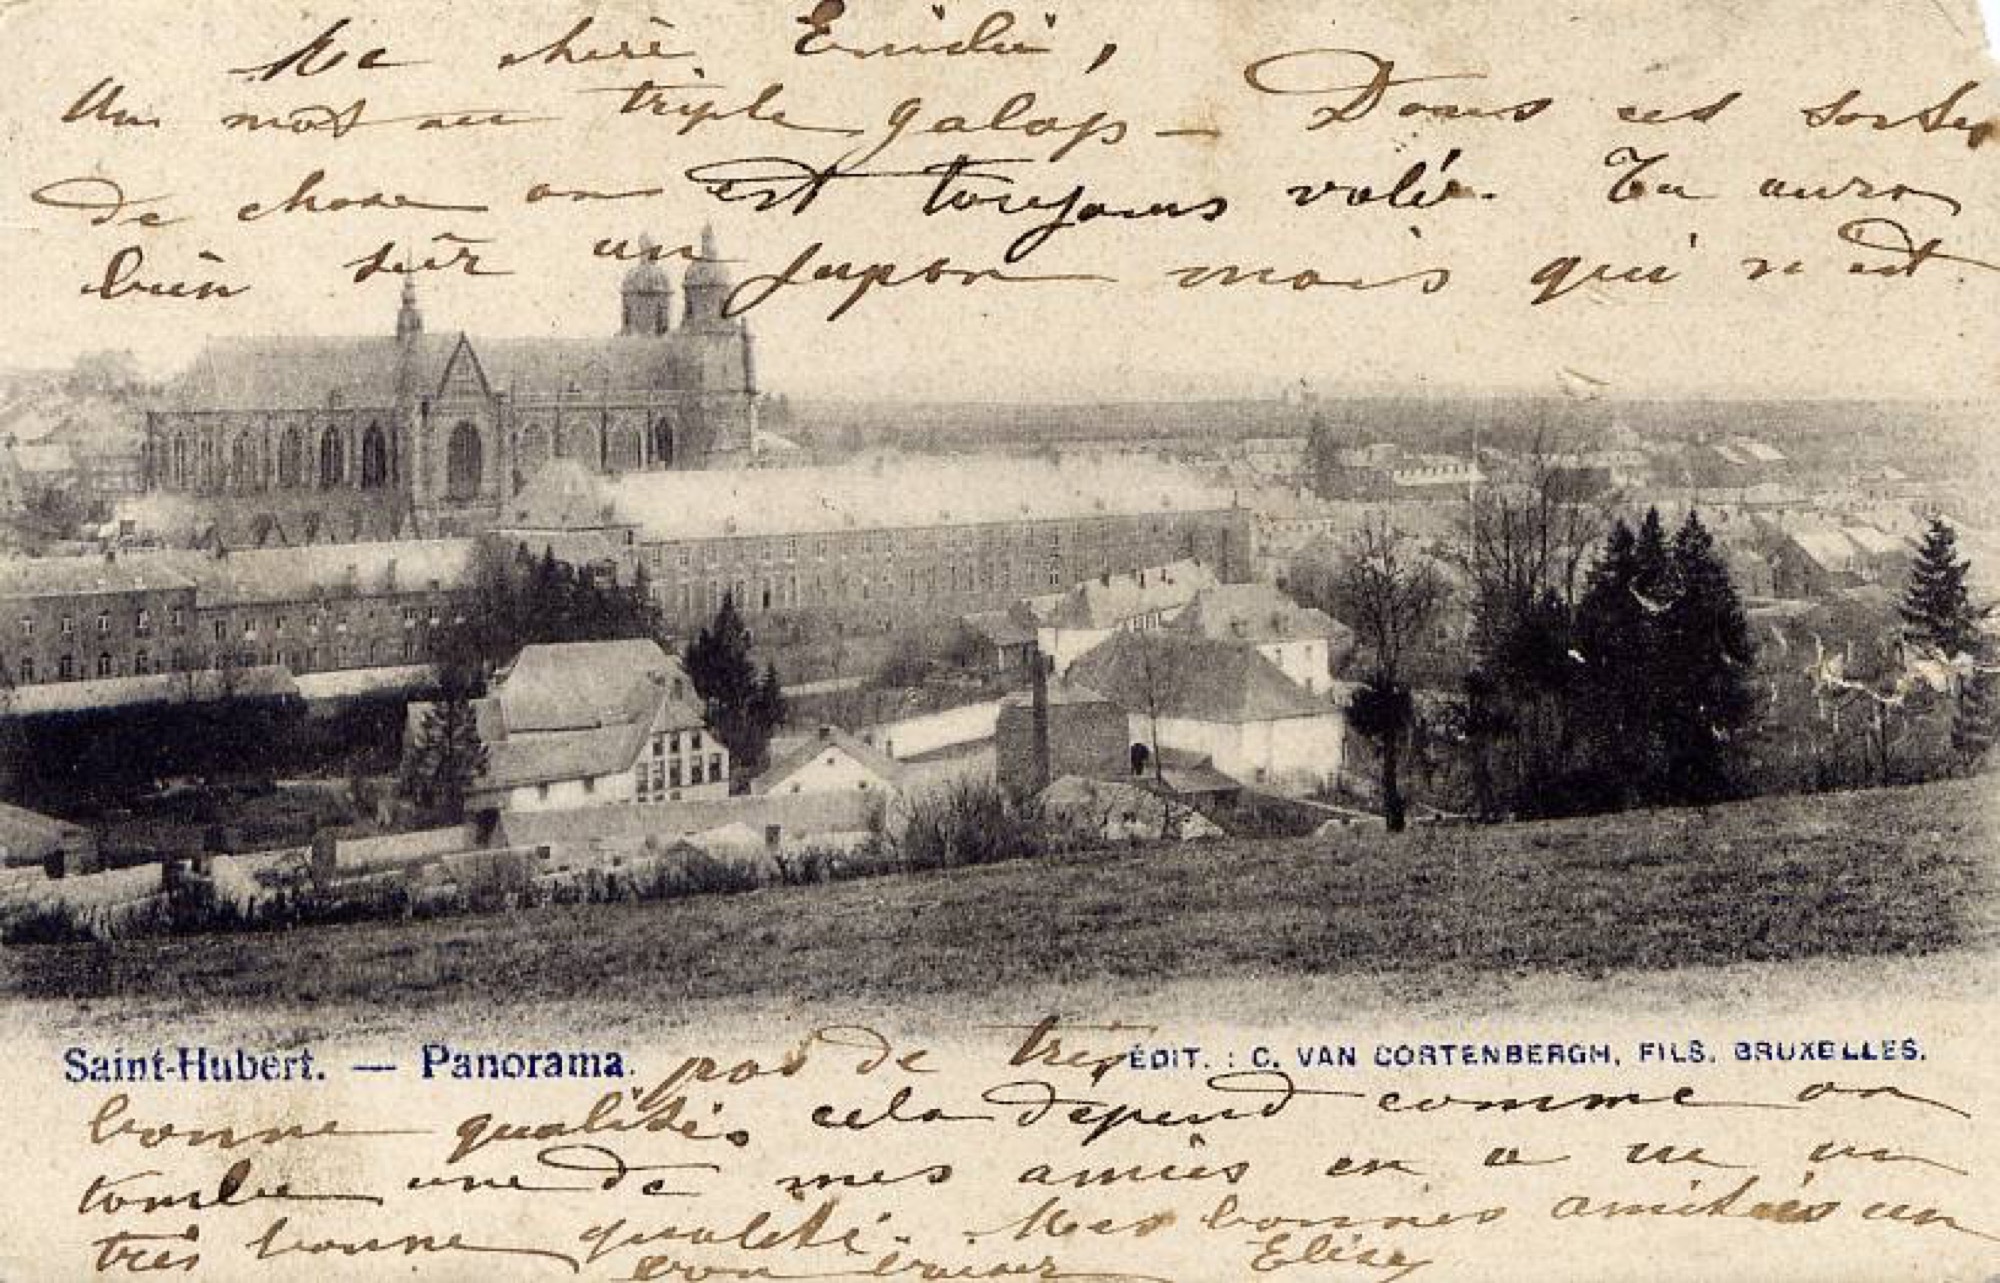 Ma chère Emilie,
Un mot au triple galop — Dans ces sortes
de chose on est toujours volé. Tu auras
bien sûr un jupon mais qui n'est
Saint-Hubert. — Panorama.
pas de très
ÉDIT. : C. VAN CORTENBERGH, FILS. BRUXELLES.
bonne qualité. cela dépend comme on
tombe une de mes amies en a eu un
très bonne qualité. Mes bonnes amitiés un
bon baiser Elise